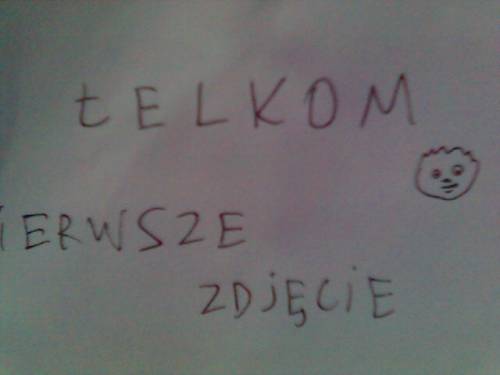 tELKOM
iERWSZE
ZDJĘCiE